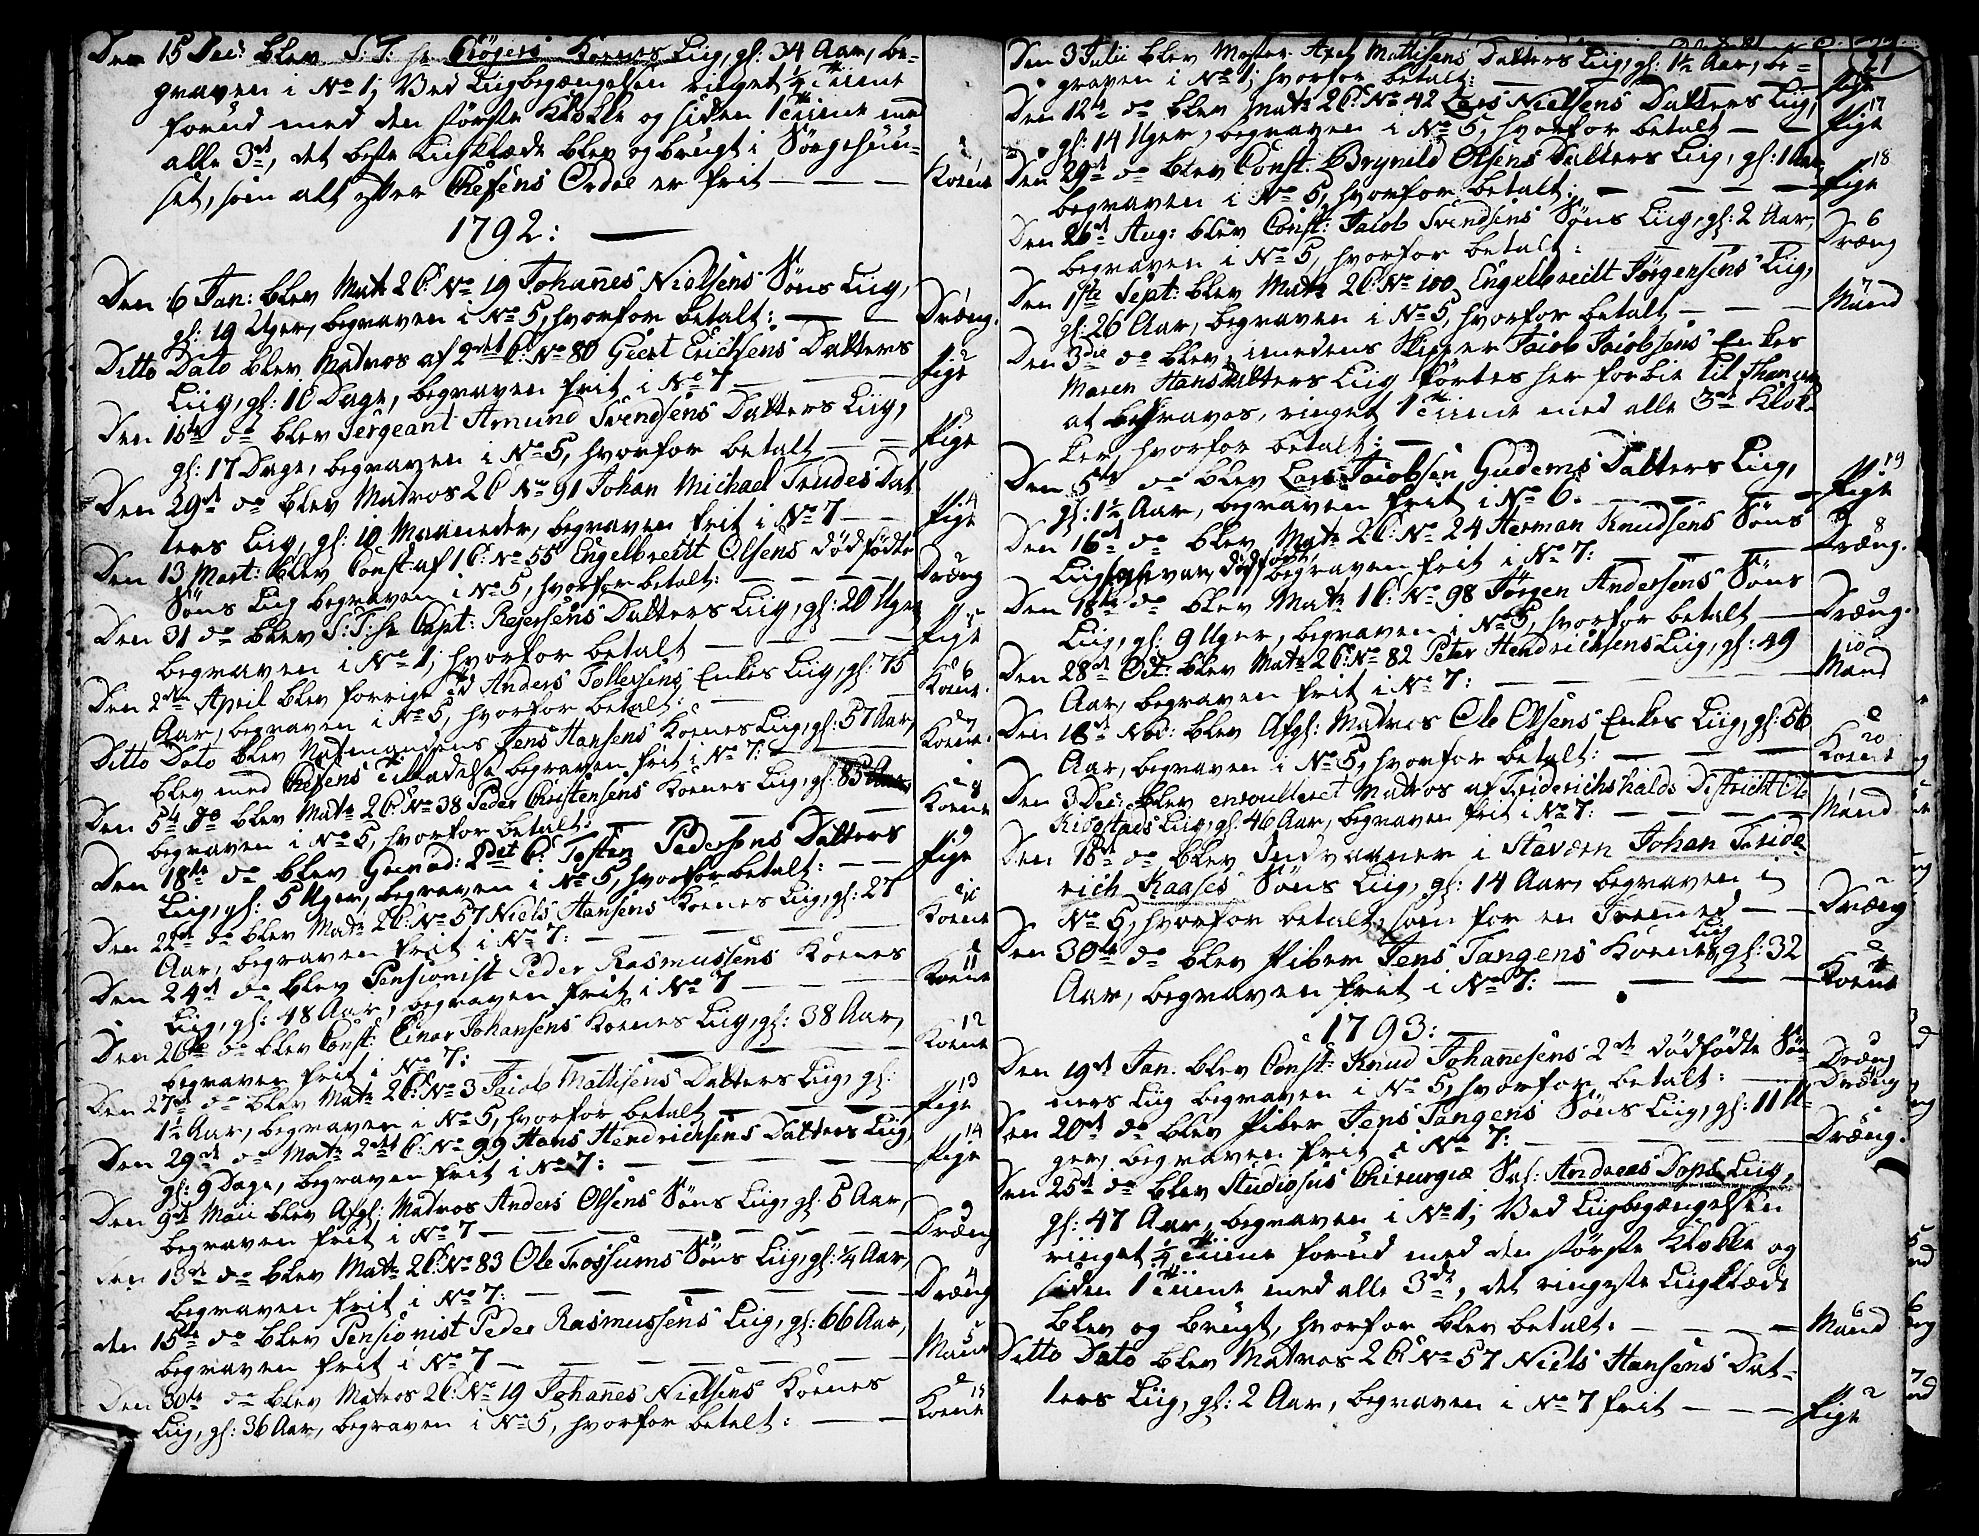 Den 15 Dec: blev S:T: Hr Crögers Koenes Liig, gl: 34 Aar, be-
graven i No 1, Ved Liigbegængelsen ringet 1/4 Tiime
forud med den største Klokke og siden 1 Tiime med
alle 3de, det beste Liigklæde blev og brugt i Sørgehuu-
set, som alt efter Chefens Ordre er frit — — — Koene
1792: —
Den 6 Jan: blev Matr 2C: No 19 Johannes Nielsens Søns Liig,
gl: 19 Uger, begraven i No 5, hvorfor betalt: — — Dræng. 1
Ditto Dato blev Matros af 2det C: No 80 Giert Erichsens Datters
Liig, gl: 10 Dage, begraven frit i No 7 — — — Pige 2
Den 15de do blev Sergeant Amund Svendsens Datters Liig,
gl: 17 Dage, begraven i No 5, hvorfor betalt — — Pige 3
Den 29de do blev Matros 2C No 91 Johan Michael Trudes Dat-
ters Liig, gl: 10 Maaneder, begraven frit i No 7 — — Pige 4
Den 13 Mart: blev Const: af 1C: No 55 Engelbrecht Olsens dødfødte
Søns Liig begraven i No 5, hvorfor betalt: — — — Dræng 2
Den 31 do blev S:T: Hr Capt: Rejersens Datters Liig, gl: 20 Uger
begraven i No 1, hvorfor betalt — — — Pige 5
Den 2den April blev forrige Anders Tollersens Enkes Liig, gl: 75
Aar, begraven i No 5, hvorfor betalt: — — Koene. 6
Ditto Dato blev Natmandens Jens Hansens Koenes Liig, gl: 57 Aar,
blev med Chefens Tilladelse begraven frit i No 7: — Koene. 7
Den 5te do blev Matr 2C: No 38 Peder Christensens Koenes Liig, gl: 85 Aar
begraven i No 5, hvorfor betalt: — — — Koene 8
Den 18de do blev 2det C: Tosten Pedersens Datters
Liig, gl: 5 Uger, begraven i No 5, hvorfor betalt: — — Pige 9
Den 22de do blev Matr 2C: No 57 Niels Hansens Koenes Liig, gl: 27
Aar, begraven frit i No 7: — — — Koene 10
Den 24de do blev Pensionist Peder Rasmussens Koenes
Liig, gl: 48 Aar, begraven frit i No 7 — — — Koene 11
Den 26de do blev Const: Einar Johansens Koenes Liig, gl: 38 Aar,
begraven frit i No 7: — — — Koene 12
Den 27de do blev Matr 2C: No 3 Jacob Mattisens Datters Liig, gl:
1 1/2 Aar, begraven i No 5, hvorfor betalt — — — Pige 13
Den 29de do Matr 2det C: No 99 Hans Hendrichsens Datters Liig,
gl: 9 Dage, begraven frit i No 7: — — — Pige 14
Den 9de Maii blev Afgl: Matros Anders Olsens Søns Liig, gl: 5 Aar,
begraven frit i No 7 — — — Dræng 3
den 13de do blev Matr 2C: No 83 Ole Frossums Søns Liig, gl: 1/4 Aar,
begraven frit i No 7: — — — Dræng 4
den 15de do blev Pensionist Peder Rasmussens Liig, gl: 66 Aar,
begraven frit i No 7 — — — Mand 5
Den 30te do blev Matros 2C: No 19 Johannes Nielsens Koenes
Liig, gl: 36 Aar, begraven i No 5, hvorfor betalt: — — Koene 15
21
Den 3 Julii blev Mester Axel Mattisens Datters Liig, gl: 1 1/2 Aar, be-
graven i No 1, hvorfor betalt: — — — Pige
Den 12te do blev Matr 2C: No 42 Lars Nielsens Datters Liig,
gl: 14 Uger, begraven i No 5, hvorfor betalt — — Pige 17
Den 29de do blev Const: Brynild Olsens Datters Liig, gl: 1 Aar
begraven i No 5, hvorfor betalt: — — — Pige 18
Den 26de Aug: blev Const: Jacob Svendsens Søns Liig, gl: 2 Aar,
begraven i No 5, hvorfor betalt: — — Dræng 6
Den 1ste Sept: blev Matr 2C: No 100 Engelbrecht Jørgensens Liig,
gl: 26 Aar, begraven i No 5, hvorfor betalt — — — Mand 7
Den 3die do blev, imedens Skipper Jacob Jacobsens Enkes
Maren Hansdatters Liig førtes her forbie til
at begraves, ringet 1 Tiime med alle 3de Klok-
ker, hvorfor betalt: —
Den 5te do blev Lars Jacobsen Gudems Datters Liig,
gl: 1 1/2 Aar, begraven frit i No 6. — — — Pige 19
Den 16de do blev Matr 2C: No 24 Herman Knudsens Søns
Liig, som var dødfødt, begraven frit i No 7: — — — Dræng. 8
Den 18de do blev Matr 1C: No 98 Jørgen Andersens Søns
Liig, gl: 9 Uger, begraven i No 5, hvorfor betalt — Dræng. 9
Den 28de Oct: blev Matr 2C: No 82 Peter Hendrichsens Liig, gl: 49
Aar, begraven frit i No 7: — — — Mand 10
Den 18de Nov: blev Afgl: Matros Ole Olsens Enkes Liig, gl: 56
Aar, begraven i No 5, hvorfor betalt: — — — Koene 20
Den 3 Dec: blev enroulleret Matros af Friderichshalds Districht Ole
Kidgstaeds Liig, gl: 46 Aar, begraven frit i No 7: — — — Mand 1
Den 15de do blev Indvaaner i Staværn Johan Fride-
rich Kaases Søns Liig, gl: 14 Aar, begraven i
No 5, hvorfor betalt, som for en Fremmed — — Dræng 2
Den 30te do blev Piber Jens Tangens Koenes Liig, gl: 32
Aar, begraven frit i No 7: — — — Koene
1793: —
Den 19de Jan. blev Const: Knud Johannesens 2de dødfødte Søn-
ners Liig begraven i No 5, hvorfor betalt: — Dræng 3 Dræng 4
Den 20de do blev Piber Jens Tangens Søns Liig, gl: 11 U-
ger, begraven frit i No 7: — — — Dræng. 5
Den 25de do blev Studiosus Chirurgiæ Sal: Andreas Dops Liig,
gl: 47 Aar, begraven i No 1, Ved Liigbegængelsen
ringet 1/4 Tiime forud med den største Klokke og
siden 1 Tiime med alle 3de, det ringeste Liigklæde
blev og brugt, hvorfor blev betalt. — — — Mand 6
Ditto Dato blev Matros 2C: No 57 Niels Hansens Dat-
ters Liig, gl: 2 Aar, begraven i No 7 frit — — — Pige 2